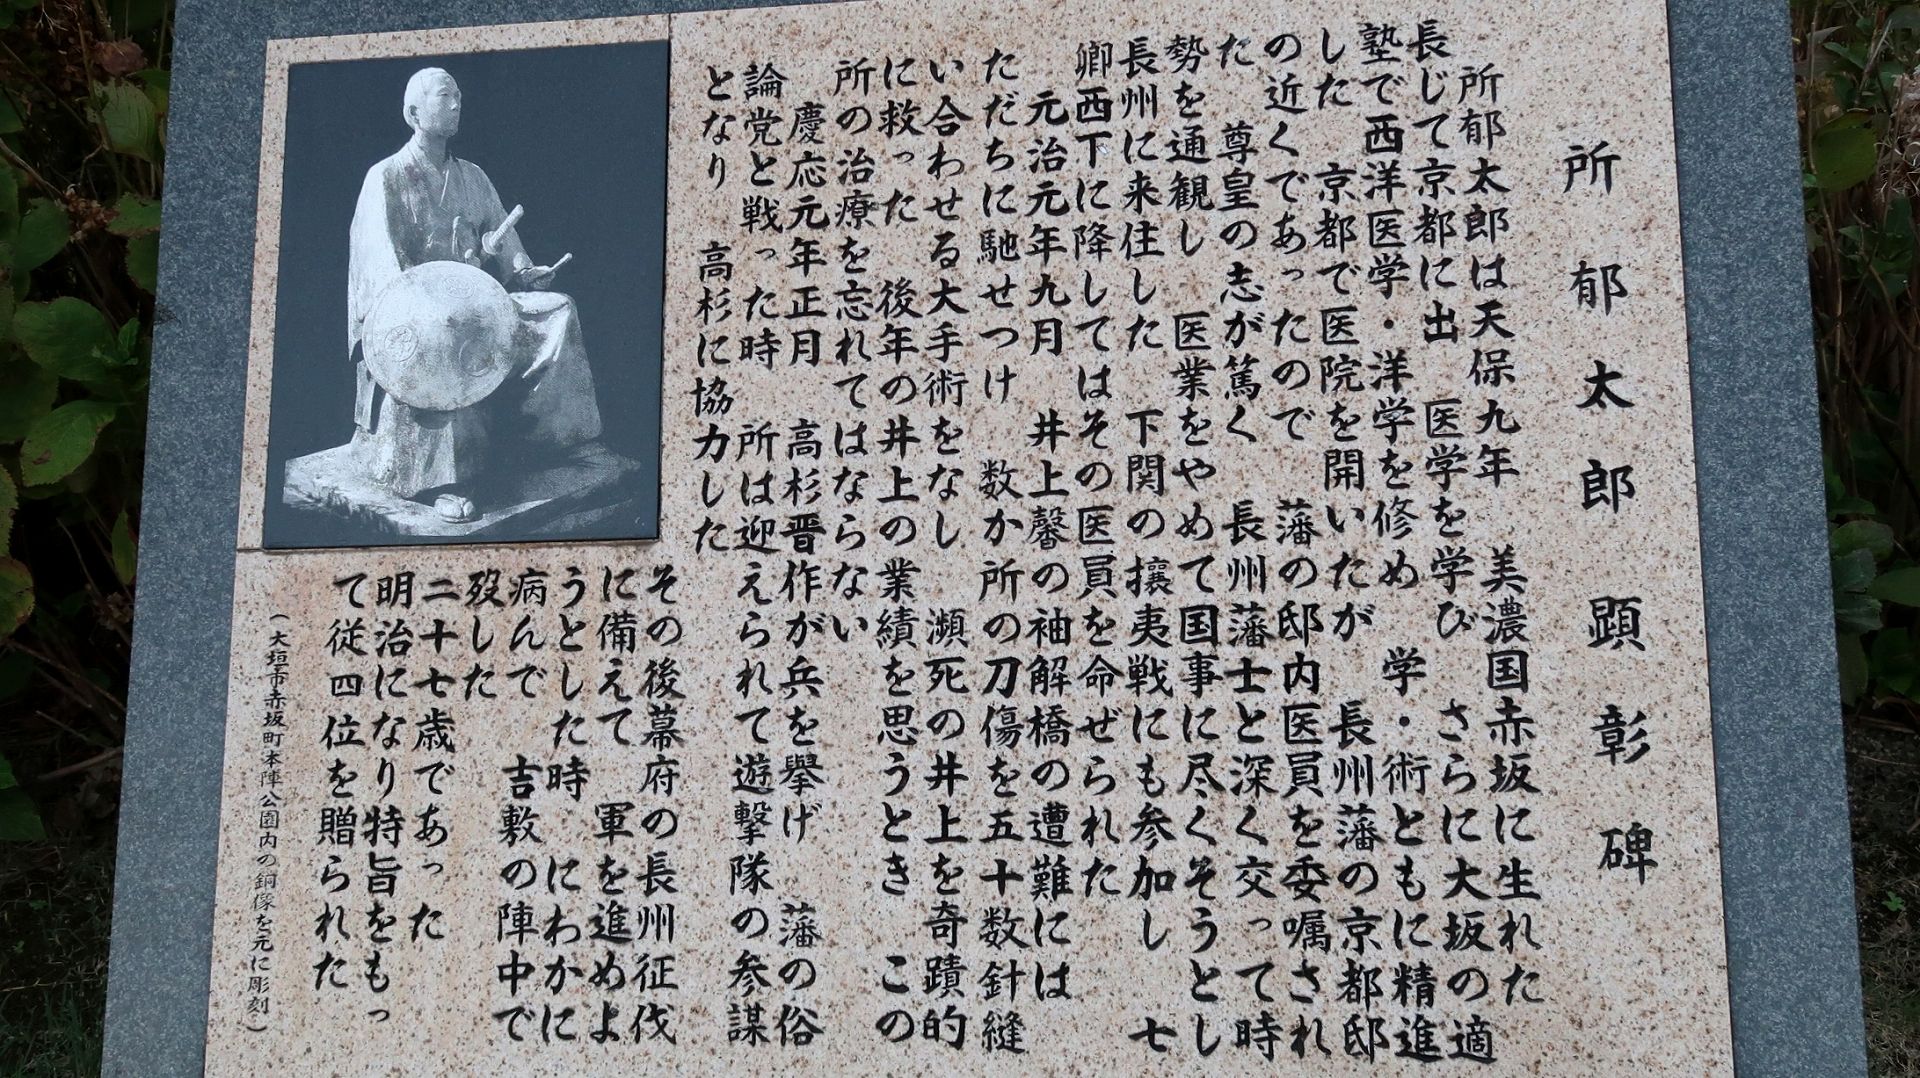 所郁太郎顕彰碑
所郁太郎は天保九年 美濃国赤坂に生れた
長じて京都に出 医学を学び さらに大坂の適
塾で西洋医学・洋学を修め 学・術ともに精進
した 京都で医院を開いたが 長州藩の京都邸
の近くであったので 藩の邸内医員を委嘱され
た 尊皇の志が篤く 長州藩士と深く交って時
勢を通観し 医業をやめて国事に尽くそうとし
長州に来住した 下関の攘夷戦にも参加し 七
卿西下に降してはその医員を命ぜられた
元治元年九月 井上馨の袖解橋の遭難には
ただちに馳せつけ 数か所の刀傷を五十数針縫
い合わせる大手術をなし 瀕死の井上を奇蹟的
に救った 後年の井上の業績を思うとき この
所の治療を忘れてはならない
慶応元年正月 高杉晋作が兵を挙げ 藩の俗
論党と戦った時 所は迎えられて遊撃隊の参謀
となり 高杉に協力した
その後幕府の長州征伐
に備えて 軍を進めよ
うとした時 にわかに
病んで 吉敷の陣中で
歿した
二十七歳であった
明治になり特旨をもっ
て従四位を贈られた
(大垣市赤坂町本陣公園内の銅像を元に彫刻)